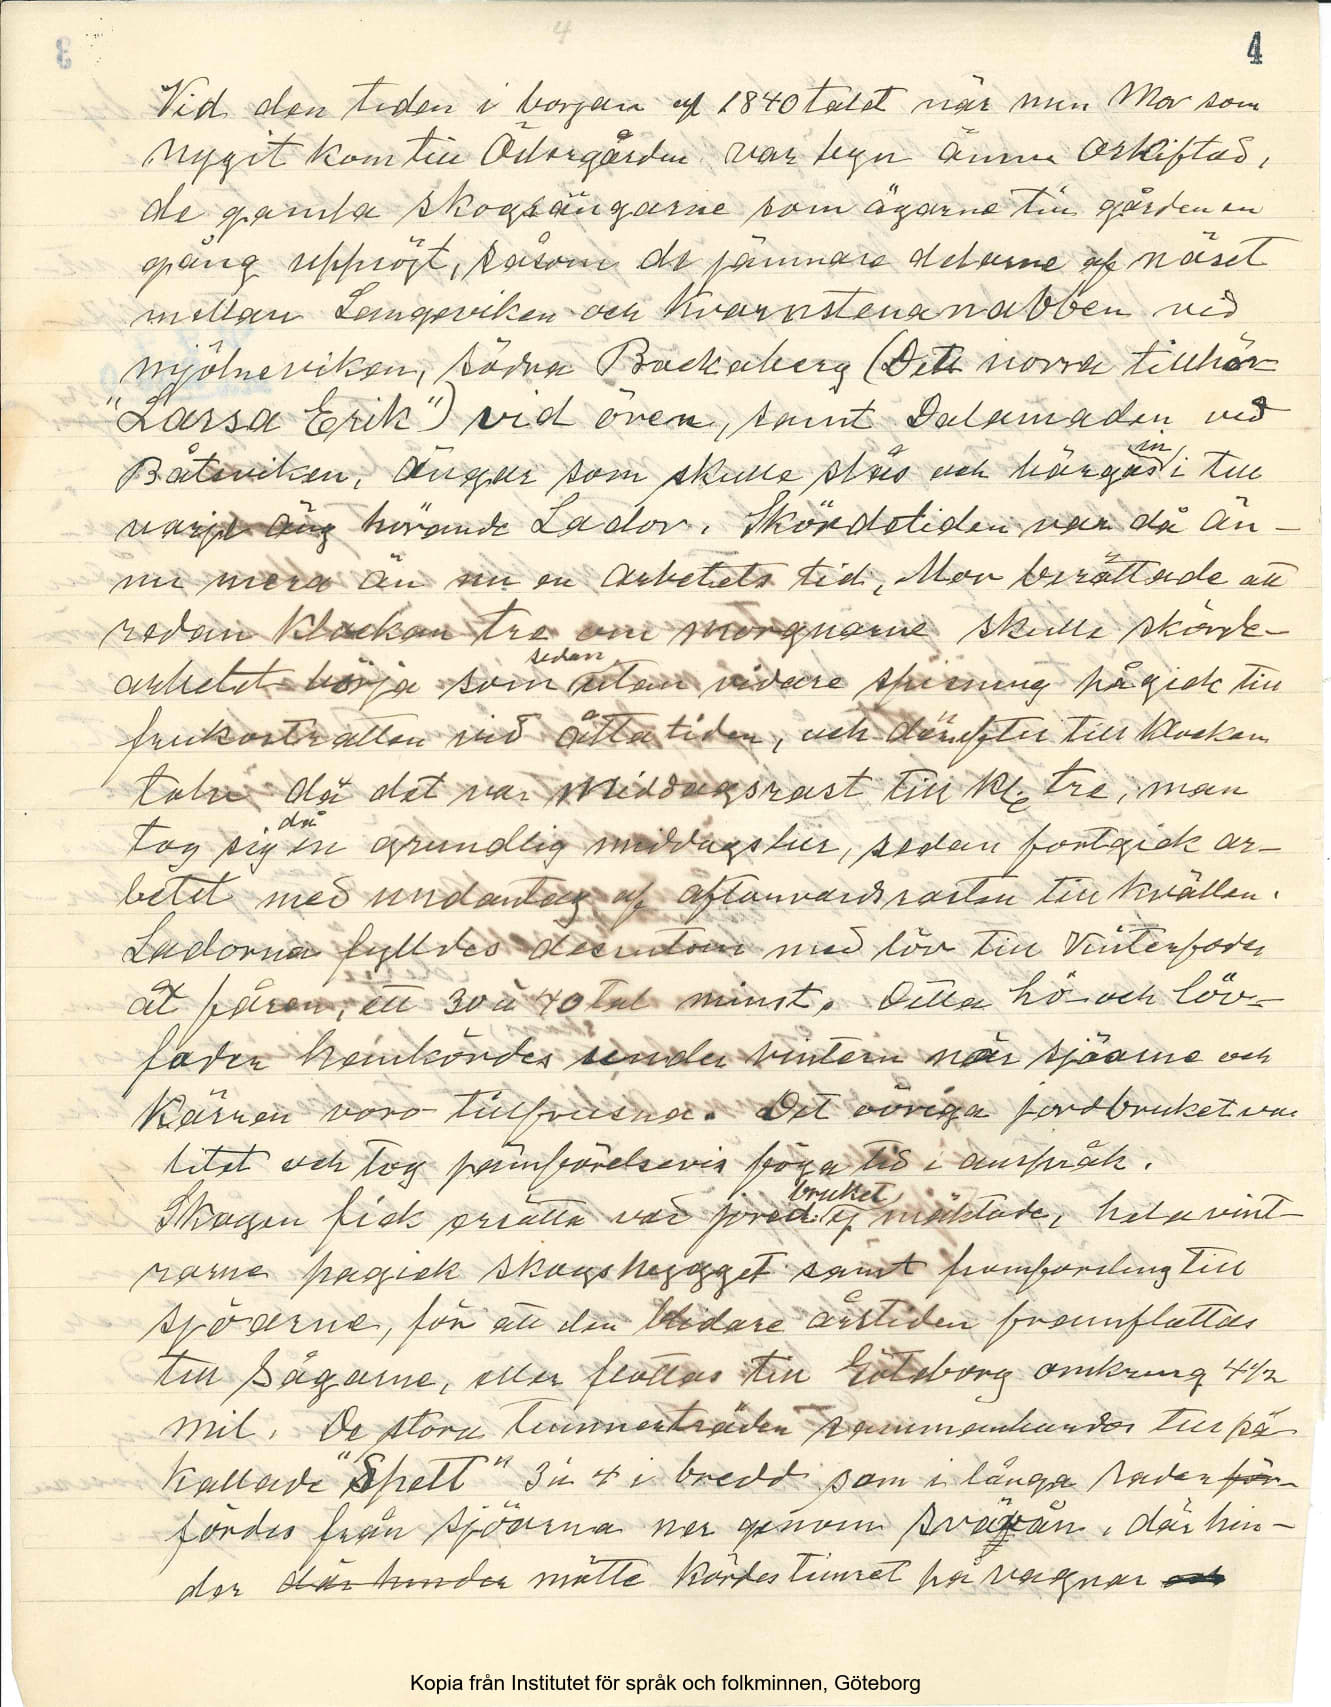 4
4
3
Vid den tiden i borjan af 1840talet när min Mor som
nygift kom till Ödsrgården var byn ännu oskiftad,
de gamla skogsängarne som ägarne till gården en
gång upprögt, såsom de jämnare delarne af näset
mellan Langeviken och Kvarnstenanabben vid
mjölneviken, södra Bockaberg (Det norra tillhör
"Lassa Erik") vid ören, samt Dalamaden vid
Båtsviken, ängar som skulle slås och bärgas in i till
varje äng hörande Lador. Skördetiden var då än-
nu mera än nu en arbetets tid, Mor berättade att
redan klockan tre om morgnarne skulle skörde-
arbetet börja som sedan utan vidare spisning pågick till
frukostrasten vid åtta tiden, och därefter till klockan
tolv då det var Middagsrast till kl. tre, man
tog sig då en grundlig middagslur, sedan fortgick ar-
betet med undantag af aftonvardsrasten till kvällen.
Ladorna fylldes dessutom med löv till Vinterfoder
åt fåren, ett 30 à 40 tal minst. Detta hö- och löv-
foder hemkördes under vintern när sjöarne och
Kärren voro tillfrusna. Det övriga jordbruket var
litet och tog jämförelsevis föga tid i anspråk.
Skogen fick ersätta vad jordbruket ej mäktade, hela vint-
rarne pagick skogshygget samt framforsling till
sjöarne, för att den blidare årstiden framflottas
till Sågarne, eller flottas till Göteborg omkring 4 1/2
mil. De stora timmerträden sammanbundos till så
kallade "Spett" 3 à 4 i bredd som i långa rader för-
fördes från sjöarna ner genom Svävån, där hin-
der där hinder mötte kördes timret på vagnar och
Kopia från Institutet för språk och folkminnen, Göteborg